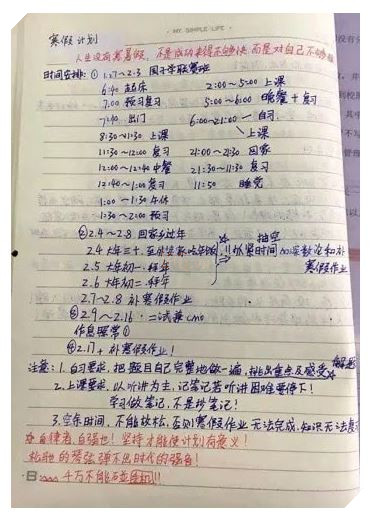 MY SIMPLE LIFE
寒假计划
人生没有寒暑假，不是成功来得不够快，而是对自己不够狠
时间安排：① 1.27~2.3 国子学联赛班
6:40 起床 2:00~5:00 上课
7:00 预习复习 5:00~6:00 晚餐+复习
7:40 出门 6:00~21:00 自习、
8:30~11:30 上课 上课
11:30~12:00 复习 21:00~21:30 回家
12:00~12:40 中餐 21:30~11:30 复习
12:40~1:00 复习 11:50 睡觉
1:00~1:30 午休
1:30~2:00 预习
② 2.4~2.8 回家乡过年
2.4 大年三十、至外婆家吃年饭 抽空
!!抓紧时间 和补
2.5 大年初一 拜年 寒假作业
2.6 大年初二 拜年
2.7~2.8 补寒假作业
③ 2.9~2.16 二试兼CMO
作息照常①
④ 2.17+ 补寒假作业！
注意：1.自习要求，把题目自己完整地做一遍，挑出重点及感受 解题
2.上课要求，以听讲为主，记笔记若听讲困难要停下！
学习做笔记，不是抄笔记！
3.空余时间，不能放松，否则寒假作业无法完成，知识无法复习
自律者，自强也！坚持才能使计划有意义！
松驰的琴弦弹不出时代的强音！
千万不能碰手机!!!